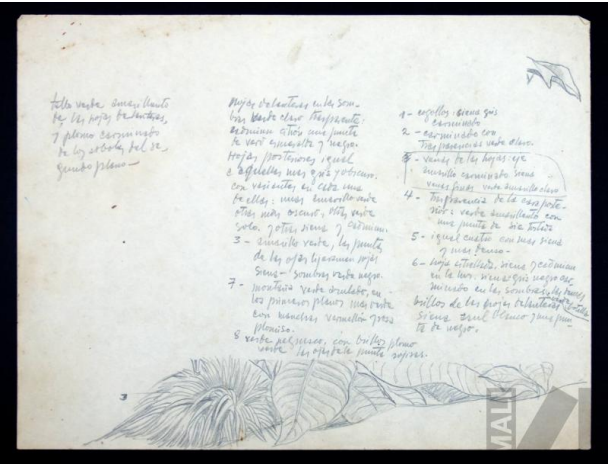 tallo verde amarillento
de las hojas delanteras,
y plomo carminado
de los árboles del se-
gundo plano—
Hojas delanteras en las som-
bras verde claro trasparente:
cadmium citrón una punta
de vert esmeralda y negro.
Hojas posteriores igual
a aquellas mas gris y obscuro.
con variantes en cada una
de ellas: unas amarillo verde
otras mas oscuro, otras verde
solo, y otras siena y cadmium.
3 – amarillo verde, las puntas
de las ojas ligeramente rojas
siena – sombras verde negro.
7 – montaña verde azulado, en
los primeros planos mas verde
con manchas vermellón y rosa
plomizo.
8 verde negruzco, con brillos plomo
verde las ojas de la punta rojizas.
1 – cogollos: siena gris
carminado
2 – carminado con
trasparencias verde claro.
3 – venas de las hojas eje
amarillo carminado siena
venas finas verde amarillo claro
4 – Trasparencia de la cara poste-
rior: verde amarillento con
una punta de sia tostada
5 – igual cuatro con mas siena
y mas blanco.
6 – hoja siena y cadmium
en la luz. siena gris negro car-
minado en las sombras
brillos de las hojas delanteras
siena azul blanco y una pun-
ta de negro.
3
MALI